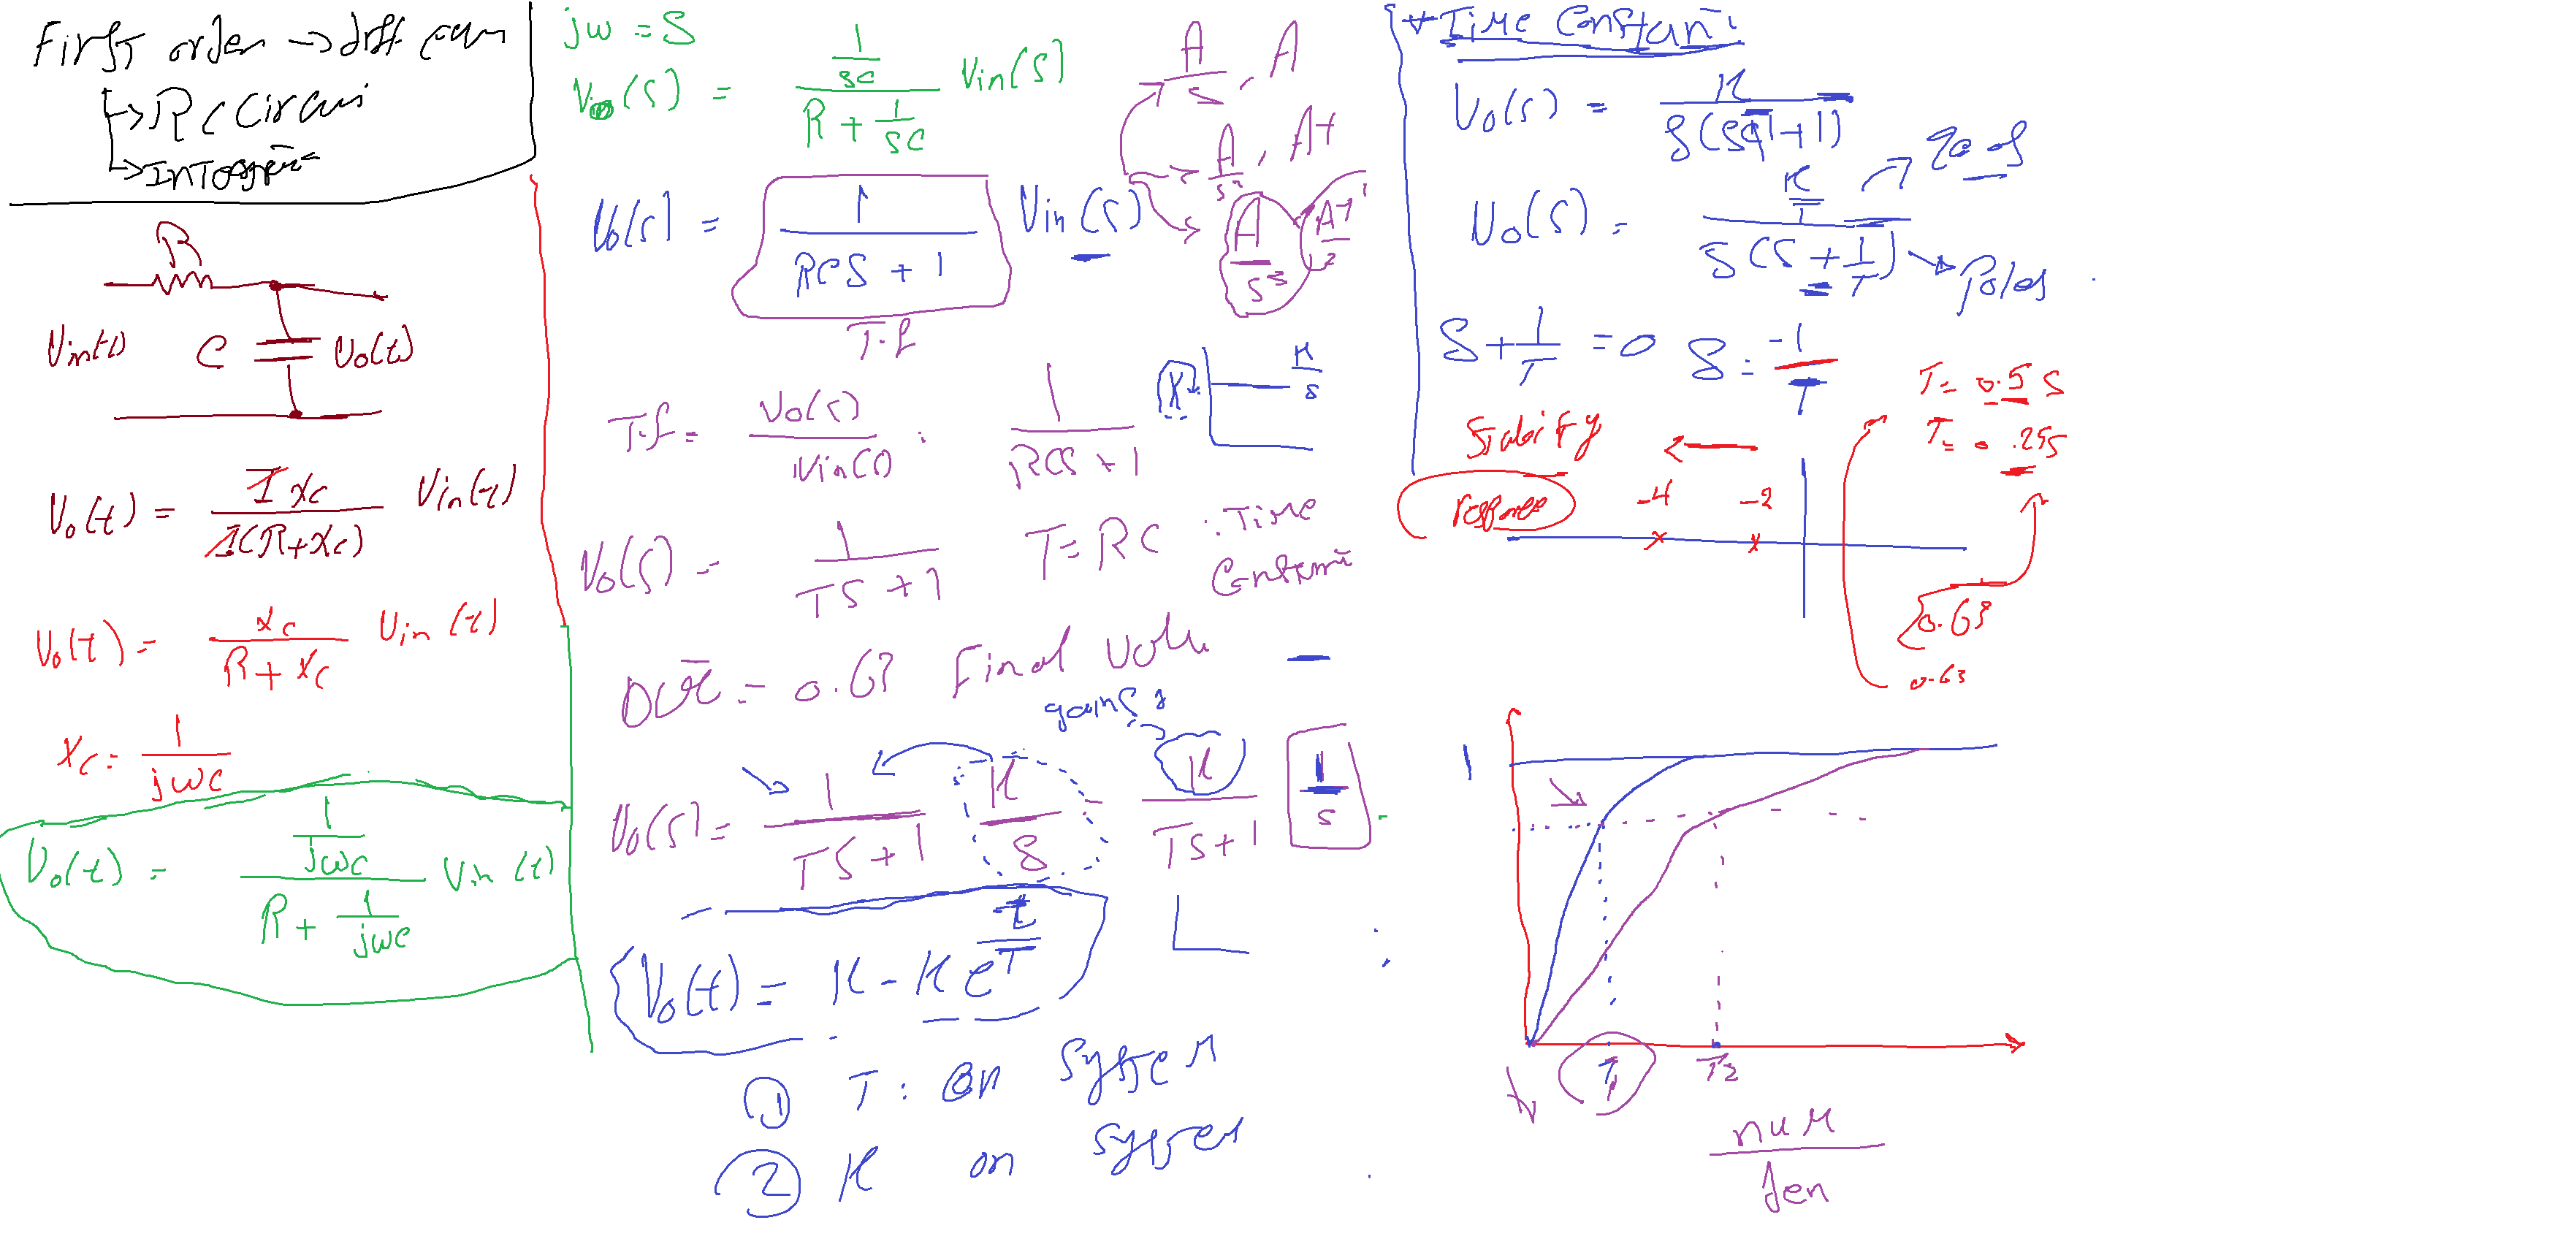 First order → diff
→ RC Circui
R
Vin(t) C Vo(t)
Vo(t) = I Xc / I(R+Xc) Vin(t)
Vo(t) = Xc / R + Xc Vin(t)
Xc = 1 / jwc
Vo(t) = 1/jwc / R + 1/jwc Vin(t)
jw = S
Vo(S) = 1/SC / R + 1/SC Vin(S)
Vo(S) = 1 / RCS + 1 Vin(S)
T.f
A/S , A
A/S² , At
A/S³ At²/2
T.f = Vo(S) / Vin(S) : 1 / RCS + 1
K K/S
Vo(S) = 1 / TS + 1 T = RC : Time
Constant
= 0.63 Final
gain
Vo(S) = 1 / TS + 1 K / S = K / TS + 1 1 / S
Vo(t) = K - K e -t/T
1 T : on System
2 K on System
* Time Constant
Vo(S) = K / S(ST + 1)
Vo(S) = K/T / S(S + 1/T) → Poles
S + 1/T = 0 S = -1 / T
T = 0.5 S
T = 0.25 S
Stability
response
-4 -2
0.63
0.63
1
T1 T2
num
den